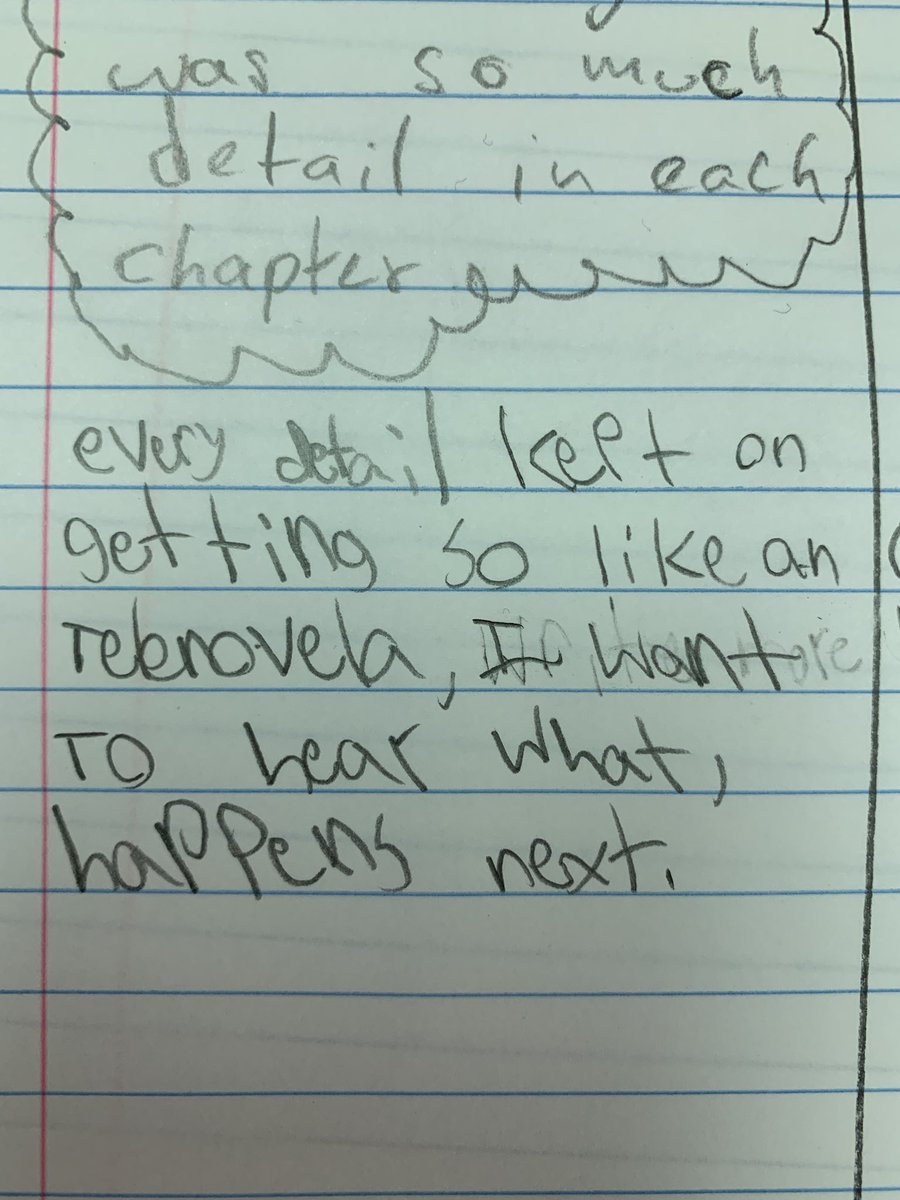 was so much
detail in each
chapter
every detail kept on
getting so like an
telenovela, I want
to hear what,
happens next.